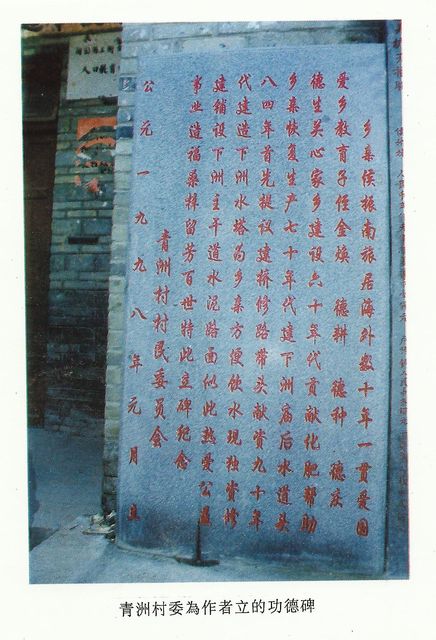 乡亲侯振南旅居海外数十年一贯爱国
爱乡教育子侄金焕 德耕 德种 德庆
德生关心家乡建设六十年代贡献化肥帮助
乡亲恢复生产七十年代建下洲眉后水道头
八四年首先提议建桥修路带头献资九十年
代建造下洲水塔为乡亲方便饮水现独资修
建铺设下洲主干道水泥路面似此热爱公益
事业造福桑梓留芳百世特此立碑纪念
青洲村村民委员会
公元一九九八年元月立
青洲村委為作者立的功德碑